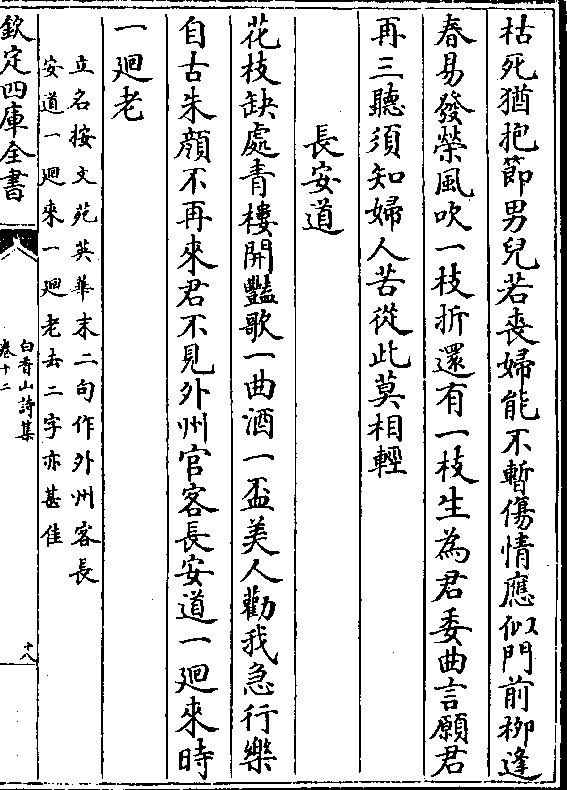 枯死猶抱節男兒若喪婦能不暫傷情應似門前栁逢
春易發榮風吹一枝折還有一枝生為君委曲言願君
再三聽須知婦人苦從此莫相輕
長安道
花枝缺處青樓開豔歌一曲酒一盃美人勸我急行樂
自古朱顔不再來君不見外州官客長安道一廻來時
一廻老
立名按文苑英華末二句作外州客長
安道一廻來一廻老去二字亦甚佳
欽定四庫全書
白香山詩集
卷十二
十八